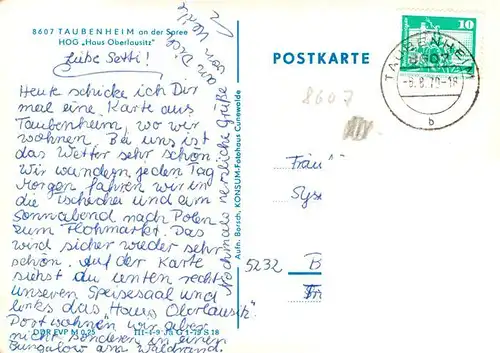 8607 TAUBENHEIM an der Spree
HOG „Haus Oberlausitz"
Liebe Setti!
Heute schicke ich Dir
mal eine Karte aus
Taubenheim, wo wir
wohnen. Bei uns ist
das Wetter sehr schön.
Wir wandern jeden Tag
Morgen fahren wir in
die Tschechei und am
Sonnabend nach Polen
zum Flohmarkt. Das
wird sicher wieder sehr
schön. Auf der Karte
siehst du unten rechts
unseren Speisesaal und
links das "Haus Oberlausitz".
Dort wohnen wir aber
nicht sondern in einem
Bungalow am Waldrand.
DDR EVP M 0,25 III-1-9 Js G 1-19 S 18
Nochmals herzliche Grüße
an Dich
von
Aufn. Borsch, KONSUM-Fotohaus Cunewalde
POSTKARTE
10
TAUBENHEIM
8607
-8.8.79-18
b
8607
Fräu
Sys
5232 B